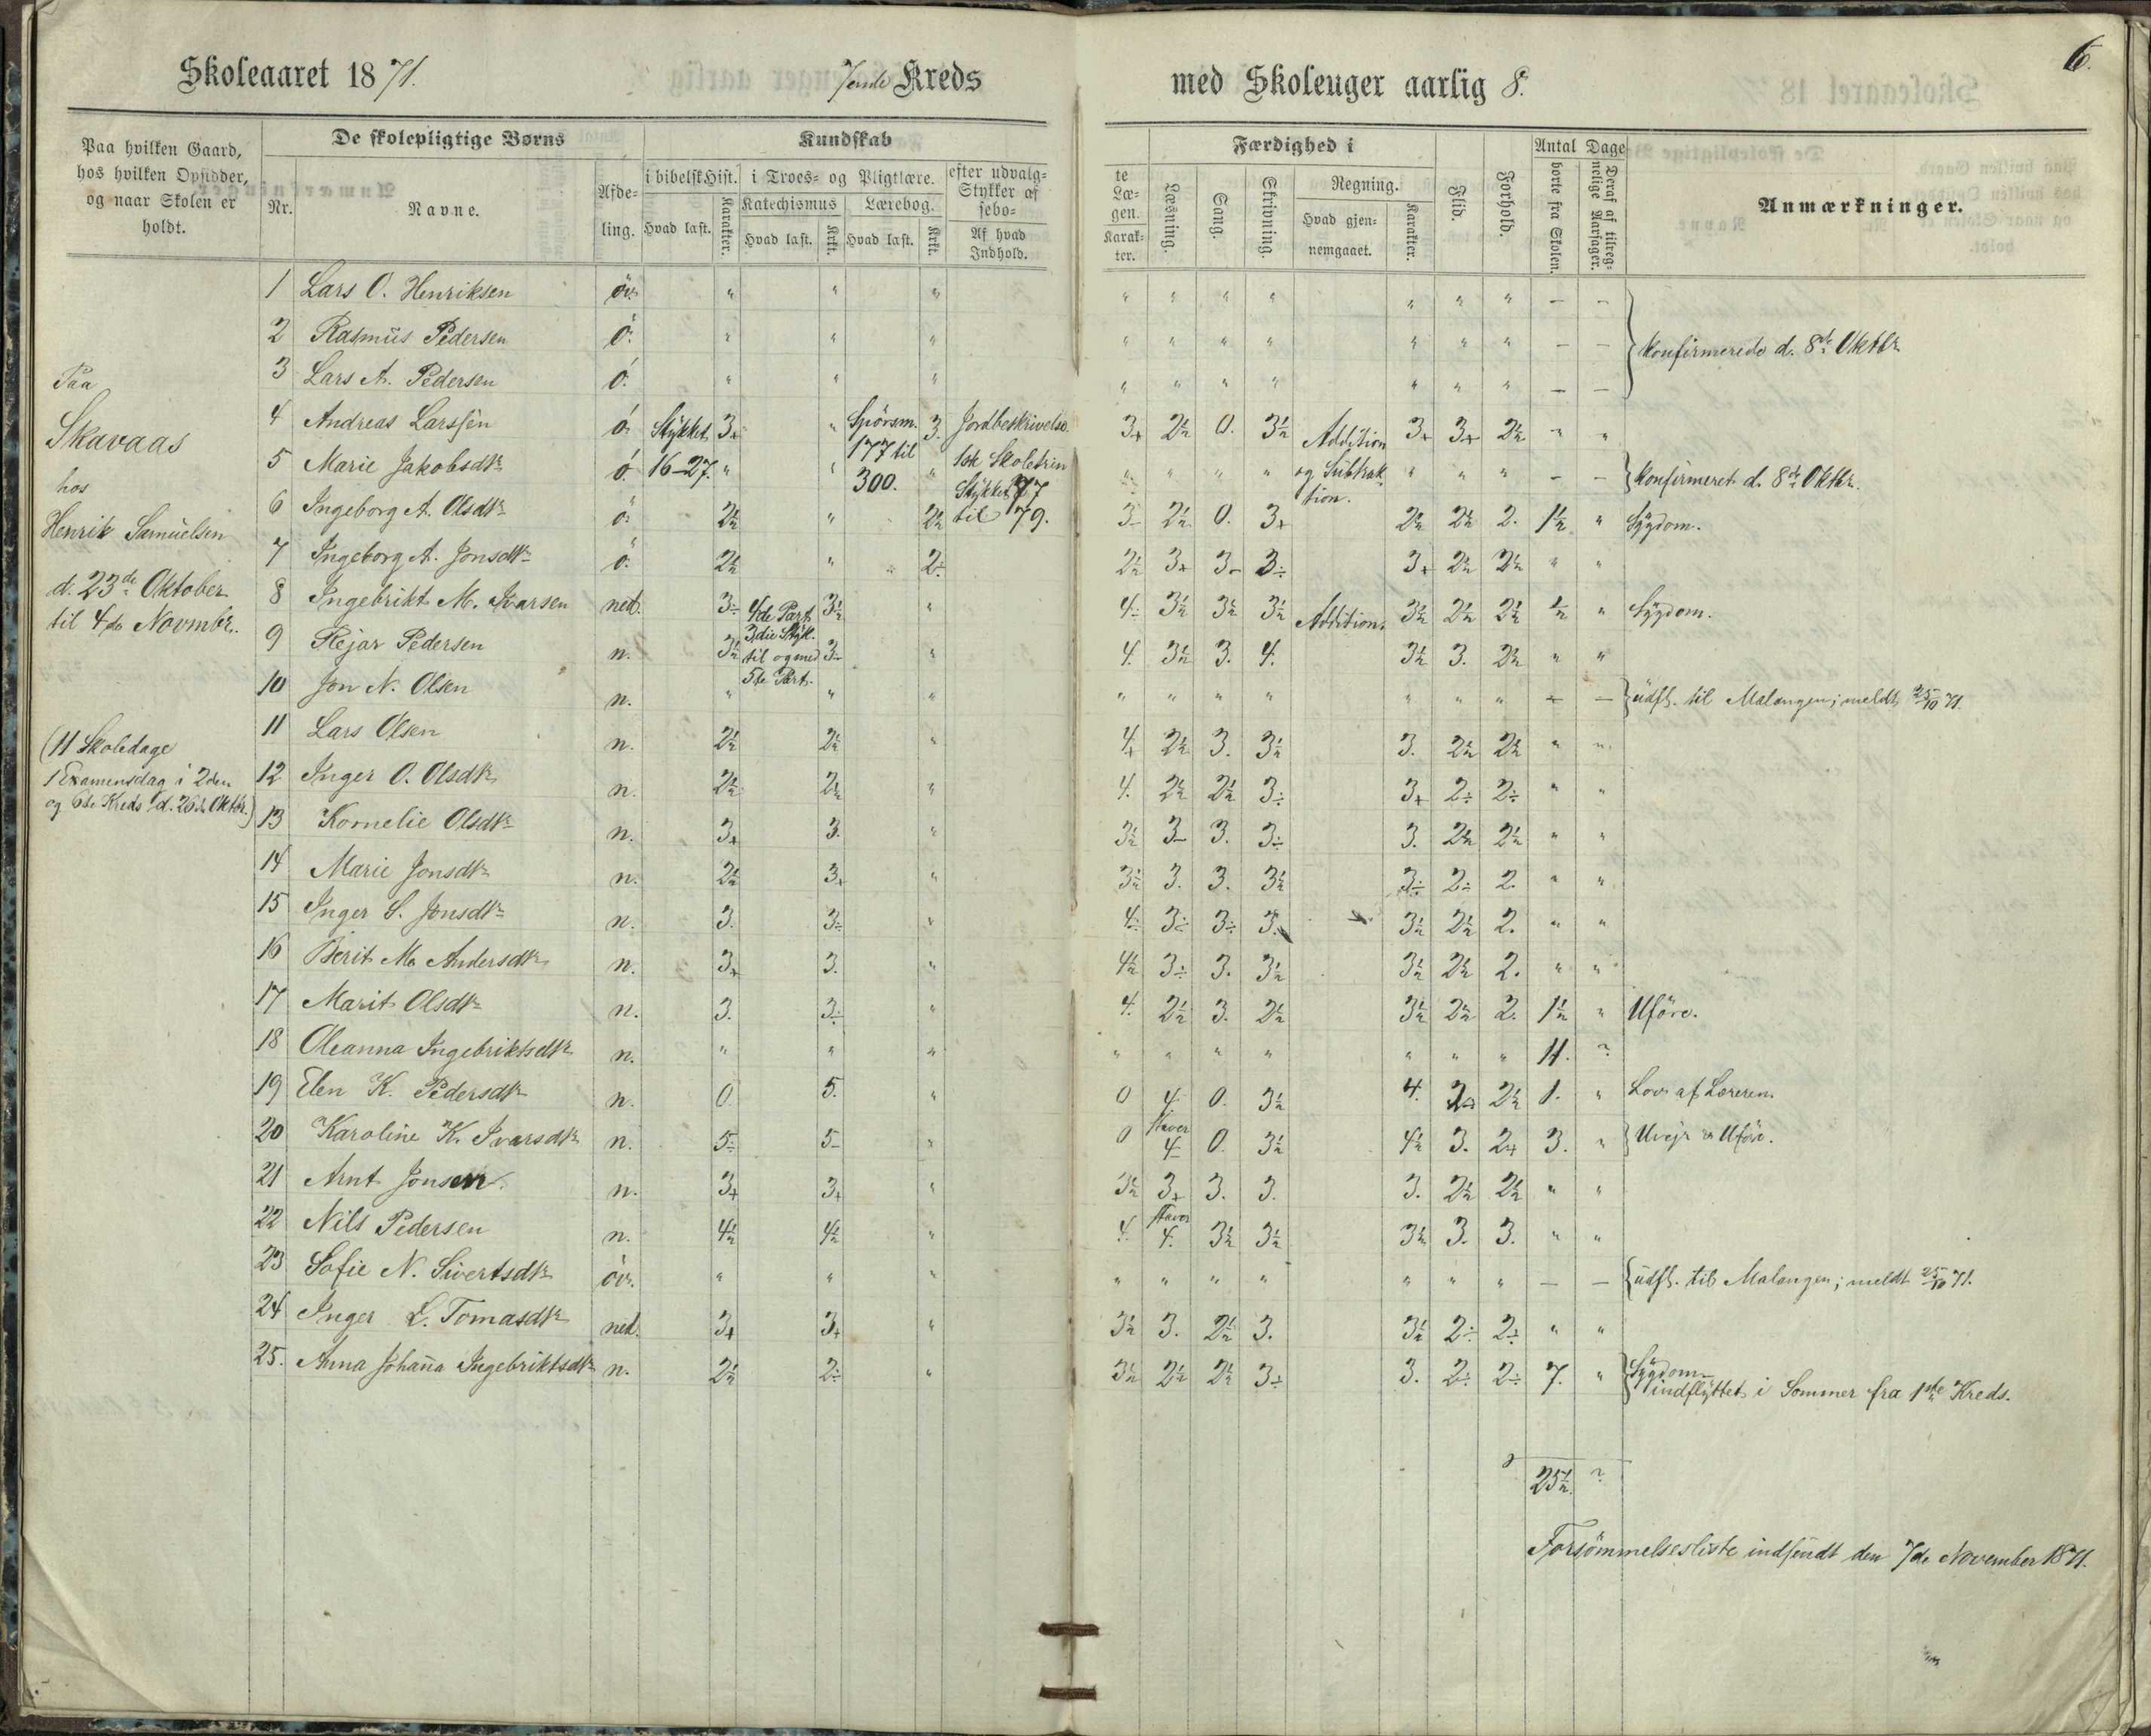 Skoleaaret 1871. 7ende Kreds med Skoleuger aarlig 8. 6.
Paa hvilken Gaard, hos hvilken Opsidder, og naar Skolen er holdt.
De skolepligtige Børns
Nr. Navne. Afdeling.
Kundskab
i bibelsk Hist. Hvad læst. Karakter.
i Troes- og Pligtlære.
Katechismus Hvad læst. Krkt. Lærebog. Hvad læst. Krkt.
efter udvalgte Stykker af Læsebogen. Af hvad Indhold. Karakter.
Færdighed i
Læsning. Sang. Skrivning. Regning. Hvad gjennemgaaet. Karakter.
Flid. Forhold.
Antal Dage
borte fra Skolen. Deraf af tilregnelige Aarsager.
Anmærkninger.
Paa
Skavaas
hos
Henrik Samuelsen
d. 23de Oktober
til 4de Novmbr.
(11 Skoledage
1 Examensdag i 2den
og 6te Kreds d. 26de Oktbr.)
1 Lars O. Henriksen öv. " " " " " " " " " " – –
2 Rasmus Pedersen ö. " " " " " " " " " " – – } konfirmerede d. 8de Oktbr.
3 Lars A. Pedersen ö. " " " " " " " " " " – –
4 Andreas Larssen ö. Stykket 3+ " Spörsm. 3. Jordbeskrivelse 3+ 2½ 0. 3½ Addition 3+ 3+ 2½ " "
5 Marie Jakobsdtr ö. 16–27. " " 177 til 300. " 1ste Skoletrin " " " " og Subtraktion. " " " – – } konfirmeret d. 8de Oktbr.
6 Ingeborg A. Olsdtr ö. 2½ " 2½ Stykket 77 til 79. 3– 2½ 0. 3+ 2½ 2½ 2. 1½ " Sygdom.
7 Ingeborg A. Jonsdtr ö. 2½ " 2÷ 2½ 3+ 3– 3÷ 3+ 2½ 2½ " "
8 Ingebrikt M. Ivarsen ned. 3÷ 4de Part 3½ " 4÷ 3½ 3½ 3½ Addition. 3½ 2½ 2½ ½ " Sygdom.
9 Pejar Pedersen n. 3½ 3die Styk. til og med 3– " 4. 3½ 3. 4. 3½ 3. 2½ " "
10 Jon N. Olsen n. " 5te Part. " " " " " " " " " – – } udfl. til Malangen; meldt 25/10 71.
11 Lars Olsen n. 2½ 2½ " 4+ 2½ 3. 3½ 3. 2½ 2½ " "
12 Inger O. Olsdtr n. 2½ 2½ " 4. 2½ 2½ 3÷ 3+ 2÷ 2÷ " "
13 Kornelie Olsdtr n. 3+ 3. " 3½ 3– 3. 3÷ 3. 2½ 2½ " "
14 Marie Jonsdtr n. 2½ 3+ " 3½ 3. 3. 3½ 3÷ 2÷ 2. " "
15 Inger S. Jonsdtr n. 3. 3÷ " 4÷ 3÷ 3÷ 3. 3½ 2½ 2. " "
16 Berit M. Andersdtr n. 3+ 3. " 4½ 3÷ 3. 3½ 3½ 2½ 2. " "
17 Marit Olsdtr n. 3. 3÷ " 4. 2½ 3. 2½ 3½ 2½ 2. 1½ " Uföre.
18 Oleanna Ingebriktsdtr n. " " " " " " " " " " 11. ?
19 Elen K. Pedersdtr n. 0. 5. " 0 4. 0. 3½ 4. 2+ 2½ 1. " Lov af Læreren.
20 Karoline K. Ivarsdtr n. 5÷ 5– " 0 staver 4– 0. 3½ 4½ 3. 2+ 3. " } Uvejr & Uföre.
21 Arnt Jonsen. n. 3+ 3+ " 3½ 3+ 3. 3. 3. 2½ 2½ " "
22 Nils Pedersen n. 4½ 4½ " 4. staver 4. 3½ 3½ 3½ 3. 3. " "
23 Sofie N. Sivertsdtr öv. " " " " " " " " " " – – { udfl. til Malangen; meldt 25/10 71.
24 Inger L. Tomasdtr ned. 3+ 3+ " 3½ 3. 2½ 3. 3½ 2÷ 2÷ " "
25. Anna Johanna Ingebriktsdtr n. 2½ 2÷ " 3½ 2½ 2½ 3÷ 3. 2÷ 2÷ 7. " } Sygdom –
indflyttet i Sommer fra 1ste Kreds.
25½. ?
Forsömmelsesliste indsendt den 7de November 1871.